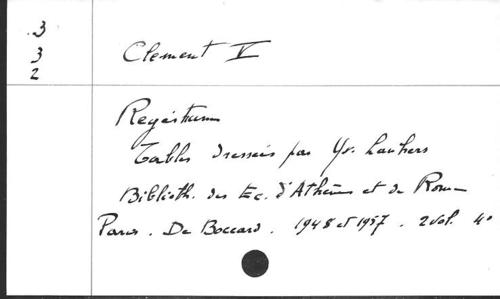 3
3
2
Clement V
Registrum
Tables dressées par Yv. Lanhers
Biblioth. des Ec. d'Athènes et de Rome
Paris. De Boccard. 1948 et 1957. 2 vol. 4°